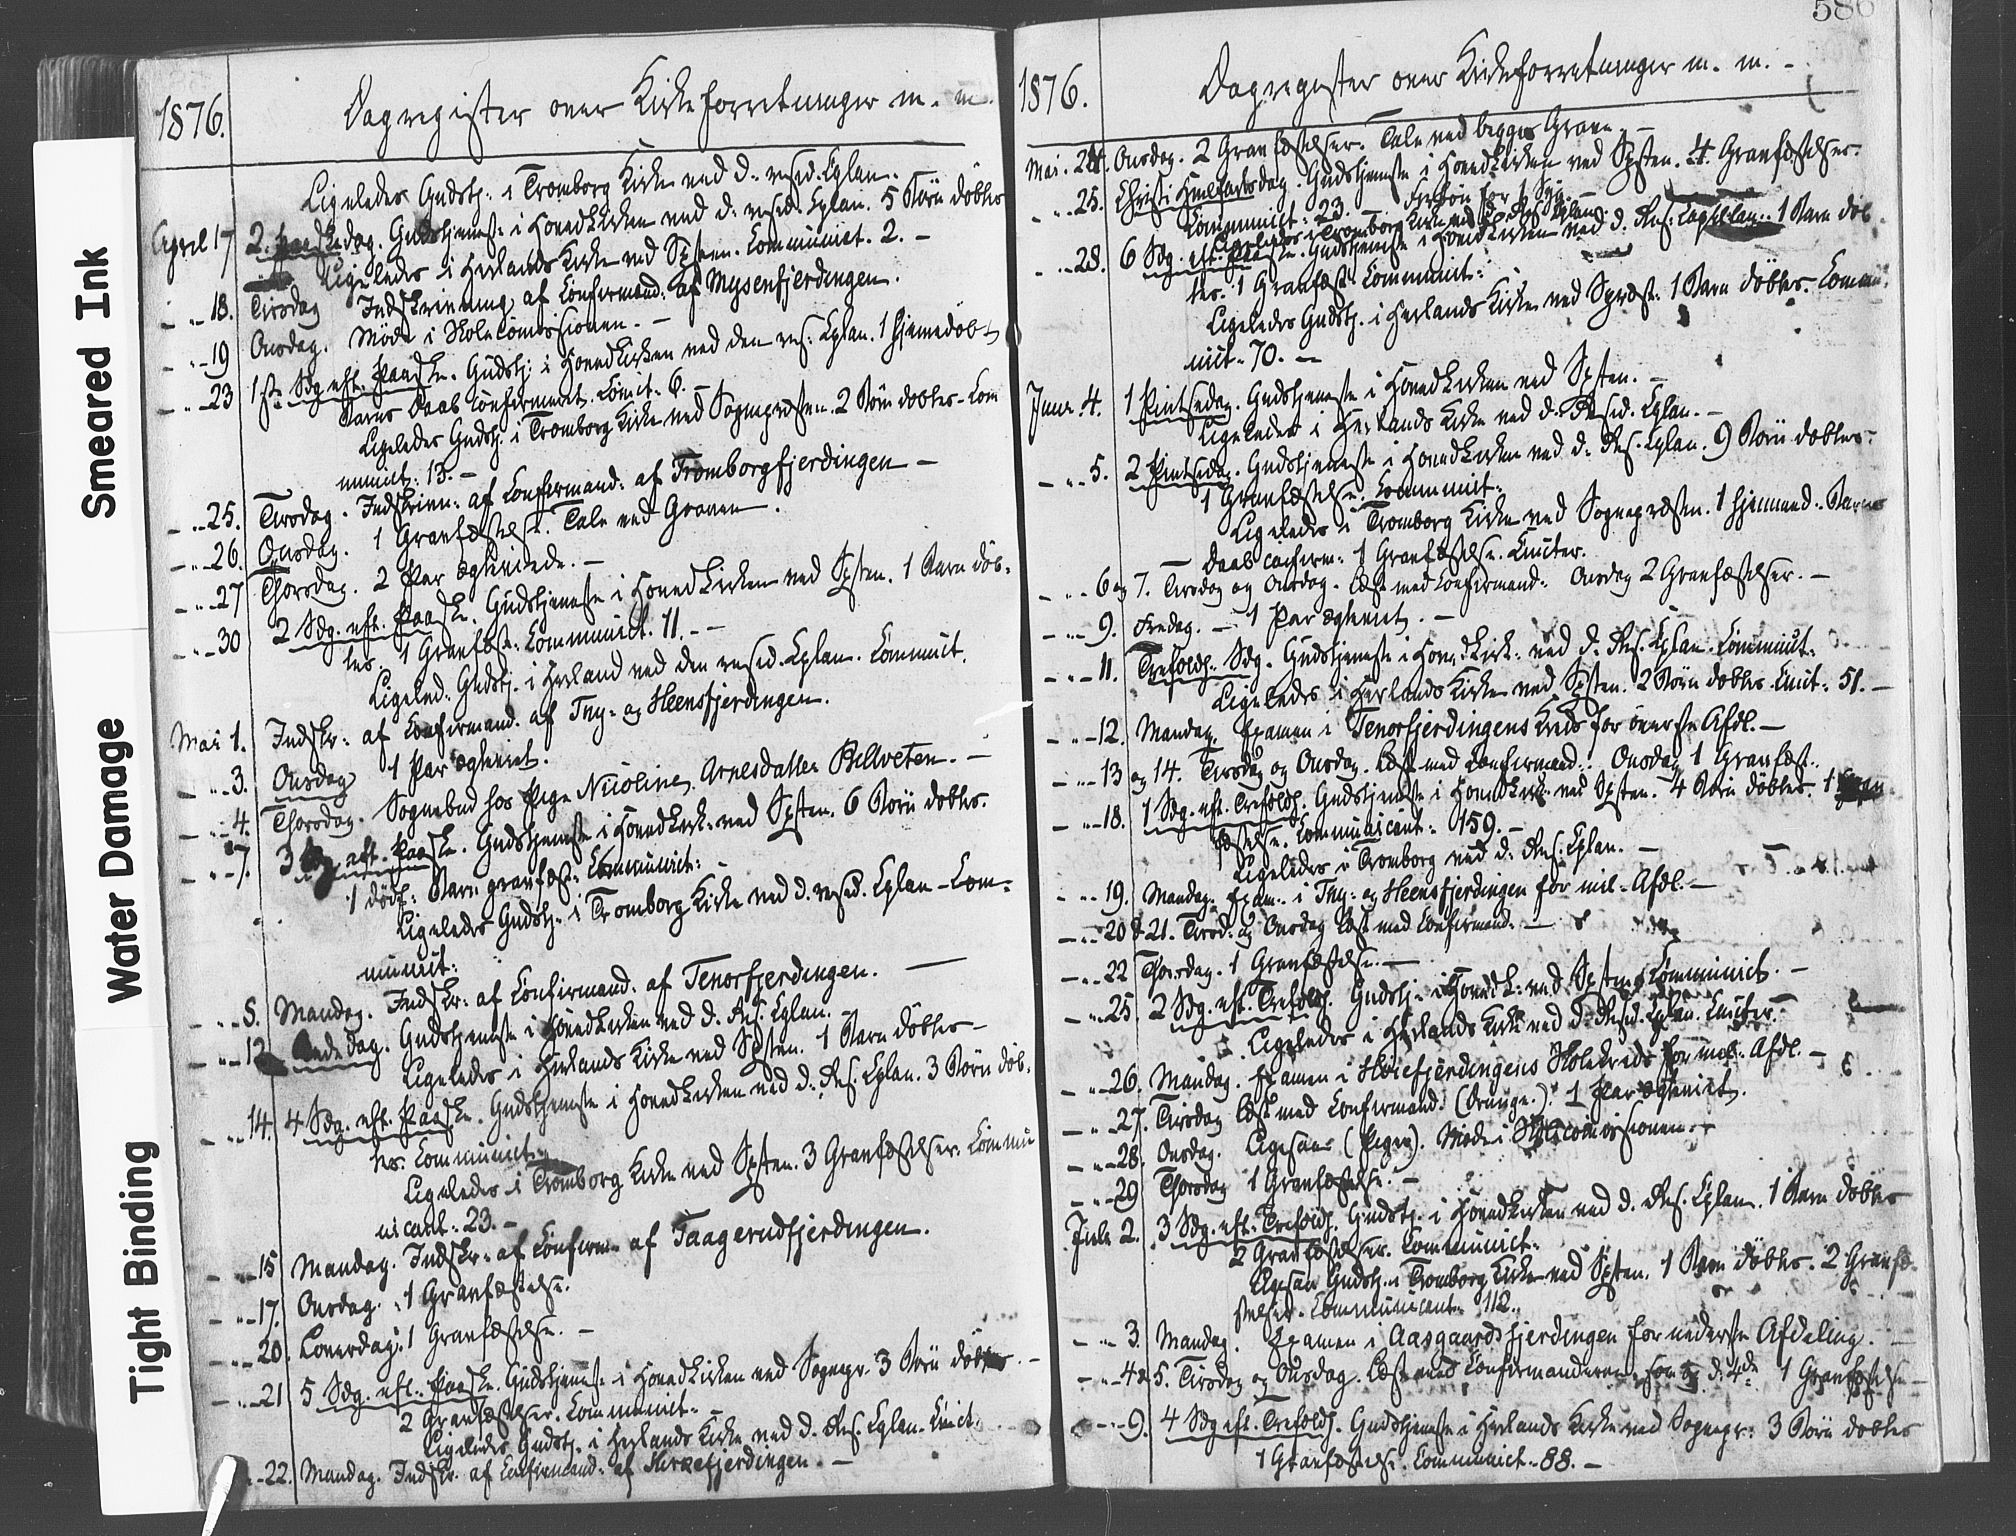 Smeared Ink
Water Damage
Tight Binding
1876.
Dagregister over Kirkeforretninger m. m.
Ligeledes Gudstj. i Tromborg Kirke ved d. resid. Cplan.
April 17 2. Paaskedag. Gudstjeneste i Hovedkirken ved d. resid. Cplan. 5 Børn döbtes
Ligeledes i Herlands Kirke ved Spsten. Communict. 2. -
- " - 18. Tirsdag Indskrivning af Confirmand: af Mysenfjerdingen.
- " - 19 Onsdag. Möde i Skolecomissionen. -
- " - 23 1ste Sdg. eft. Paaske. Gudstj: i Hovedkirken ved den res: Cplan. 1 hjemmedöbt
Barns Daab confirmeret. Comict. 6. -
Ligeledes Gudstj. i Tromborg Kirke ved Sognepræsten. 2 Börn döbtes - Com
munict: 13. -
- " - 25. Tirsdag. Indskrivn: af Confirmand: af Tromborgfjerdingen -
- " - 26. Onsdag. 1 Gravfæstelse. Tale ved Graven.
- " - 27 Thorsdag. 2 Par ægteviede. -
- " - 30 2 Sdg. eft. Paaske. Gudstjeneste i Hovedkirken ved Spsten. 1 Barn döb-
tes. 1 Gravfæst. Communict. 11. -
Ligeled. Gudstj. i Herland ved den resid. Cplan. Communict.
Mai 1. Indskr: af Confirmand. af Thy- og Heensfjerdingen.
- " - 3. Onsdag 1 Par ægteviet.
- " - 4. Thorsdag. Sognebud hos Pige Nicoline Arnesdatter
- " - 7. 3 Sdg. eft. Paaske. Gudstjeneste i Hovedkirk: ved Spsten. 6 Börn döbtes.
1 dödf: Barn gravfæst: Communict: -
Ligeledes Gudstj. i Tromborg Kirke ved d. resid. Cplan - Com-
munict:
- " - 8. Mandag. Indskr: af Confirmand: af Tenorfjerdingen. -
- " - 12 Bededag. Gudstjeneste i Hovedkirken ved d. Res. Cplan.
Ligeledes i Herlands Kirke ved Spsten. 1 Barn döbtes -
- " - 14. 4 Sdg. eft. Paaske. Gudstjeneste i Hovedkirken ved d. Res. Cplan. 3 Börn döb-
tes. Communict.
Ligeledes i Tromborg Kirke ved Spsten. 3 Gravfæstelser. Commu
nicant: 23. -
- " - 15 Mandag. Indskr: af Confirm. af Taagerudfjerdingen.
- " - 17. Onsdag. 1 Gravfæstelse.
- " - 20. Löverdag. 1 Gravfæstelse. -
- " - 21 5 Sdg. eft. Paaske. Gudstjeneste i Hovedkirken ved Sognepr. 3 Börn döbtes. -
2 Gravfæstelser. Communict. -
Ligeledes Gudstj. i Herlands Kirke ved d. Res. Cplan. Cmict.
- " - 22. Mandag. Indskr. af Confirmand: af
586
1876.
Dagregister over Kirkeforretninger m. m. -
Mai. 24. Onsdag. 2 Gravfæstelser. Tale ved begges Grave -
- " - 25. Christi Himlfartsdag. Gudstjeneste i Hovedkirken ved Spsten. 4 Gravfæstelser.
Communict: 23. - Forbön for 1 Syg. -
Ligeledes i Tromborg Kirke ved d. Res. Cplan.
- " - 28. 6 Sdg. eft. Paaske. Gudstjeneste i Hovedkirken ved d. Res. Capellan. 1 Barn döb
tes. 1 Gravfæst. Communict:
Ligeledes Gudstj. i Herlands Kirke ved Spræst. 1 Barn döbtes. Commu
nict. 70. -
Juni. 4. 1 Pintsedag. Gudstjeneste i Hovedkirken ved Spsten. -
Ligeledes i Herlands Kirke ved d. Resid. Cplan. -
- " - 5. 2 Pintsedag. Gudstjeneste i Hovedkirken ved d. Res. Cplan. 9 Börn döbtes.
1 Gravfæstelse. Communict.
Ligeledes i Tromborg Kirke ved Sognepræsten. 1 hjemmed. Barns
Daab confirm: 1 Gravfæstelse. Cmicter.
- " - 6 og 7. Tirsdag og Onsdag. Læst med Confirmand: Onsdag 2 Gravfæstelser. -
- " - 9. Fredag. - 1 Par ægteviet. -
- " - 11. Trefoldh. Sdg. Gudstjeneste i Hovedkirk: ved d. Res. Cplan. Communict.
Ligeledes i Herlands Kirke ved Spsten. 2 Börn döbtes. Cmict: 51. -
- " - 12. Mandag. Examen i Tenorfjerdingens Kreds for överste Afdl. -
- " - 13 og 14. Tirsdag og Onsdag. Læst med Confirmand: Onsdag 1 Gravfæst.
- " - 18. 1 Sdg. eft. Trefoldh. Gudstjeneste i Hovedkirk: ved Spsten. 4 Börn döbtes. 1 Grav
fæstelse. Communicant: 159. -
Ligeledes i Tromborg ved d. Res. Cplan. -
- " - 19. Mandag. Exam. i Thy- og Heensfjerdingen for mel- Afdl. -
- " - 20 & 21. Tirsd. og Onsdag læst med Confirmand. -
- " - 22 Thorsdag. 1 Gravfæstelse. -
- " - 25. 2 Sdg. eft. Trefoldh. Gudstj. i Hovedk: ved Spsten. Communict. -
Ligeledes i Herlands Kirke ved d. Resid. Cplan. Cmicter. -
- " - 26. Mandag. Examen i Höiefjerdingens Skolekreds for mel. Afdl. -
- " - 27. Tirsdag læst med Confirmand. (Drenge.) 1 Par ægteviet.
- " - 28. Onsdag. Ligesaa (Piger). Möde i Skolecomissionen. -
- " - 29 Thorsdag 1 Gravfæstelse. -
Juli 2. 3 Sdg. eft. Trefoldh. Gudstj. i Hovedkirken ved d. Res. Cplan. 1 Barn döbtes
2 Gravfæstelser. Communict.
Ligesaa Gudstj. i Tromborg Kirke ved Spsten. 1 Barn döbtes. 2 Gravfæ-
stelser. Communicant: 112.
- " - 3. Mandag. Examen i Aasgaardsfjerdingen for nederste Afdeling. -
- " - 4 & 5. Tirsdag og Onsdag. Læst med Confirmanderne, d. 4de 1 Gravfæstelse
- " - 9. 4 Sdg eft. Trefoldh. Gudstjeneste i Herlands Kirke ved Sognepr: 3 Börn döbtes
1 Gravfæstelse. Communict. 88. -